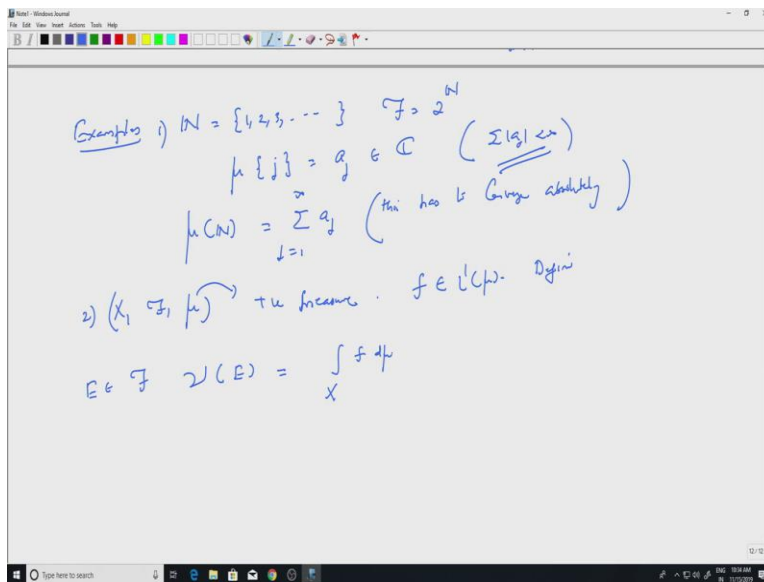 Note1 - Windows Journal
File Edit View Insert Actions Tools Help
B I
Examples 1) ℕ = {1, 2, 3, ... } ℱ = 2^ℕ
μ{j} = a_j ∈ ℂ ( Σ|a_j| < ∞ )
μ(ℕ) = Σ_{j=1}^∞ a_j ( this has to Converge absolutely )
2) (X, ℱ, μ) → +ve measure. f ∈ L^1(μ). Define
E ∈ ℱ ν(E) = ∫_X f dμ
12/12
Type here to search
ENG 10:34 AM
IN 11/15/2019